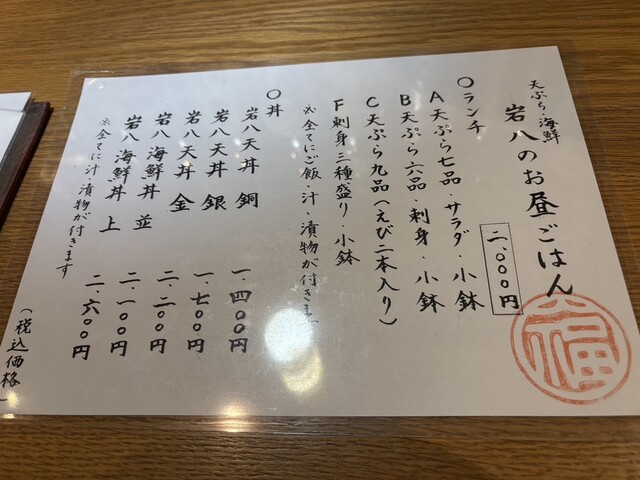 天ぷら・海鮮
岩八のお昼ごはん
〇ランチ
二、〇〇〇円
A天ぷら七品・サラダ・小鉢
B天ぷら六品・刺身・小鉢
C天ぷら九品(えび二本入り)
F刺身三種盛り・小鉢
※全てにご飯・汁・漬物が付きます、
〇丼
岩八天丼 銅 一、四〇〇円
岩八天丼 銀 一、七〇〇円
岩八天丼 金 二、二〇〇円
岩八海鮮丼 並 二、一〇〇円
岩八海鮮丼 上 二、六〇〇円
※全てに汁・漬物が付きます
(税込価格)
福